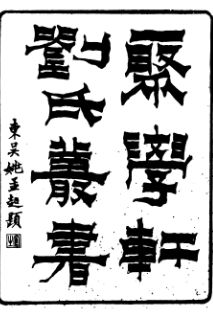 聚學軒
劉氏叢書
東吳姚孟起題